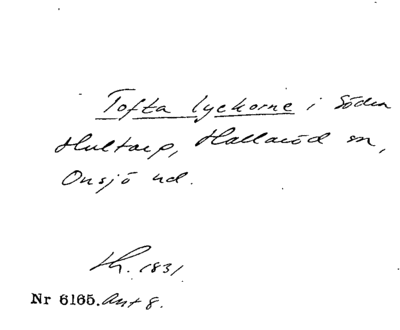 Tofta lyckorne i Södra
Hultarp, Hallaröd sn,
Onsjö hd.
Lh. 1831
Nr 6165. Ant 8.